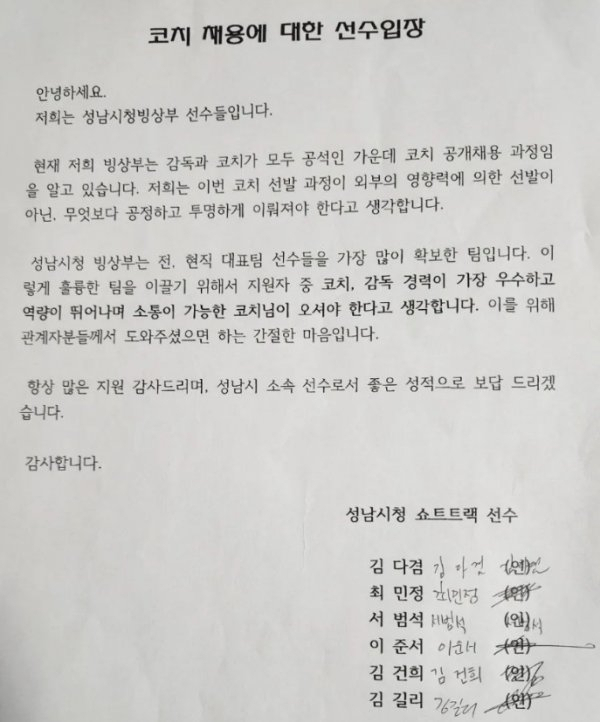 코치 채용에 대한 선수입장
안녕하세요.
저희는 성남시청빙상부 선수들입니다.
현재 저희 빙상부는 감독과 코치가 모두 공석인 가운데 코치 공개채용 과정임
을 알고 있습니다. 저희는 이번 코치 선발 과정이 외부의 영향력에 의한 선발이
아닌, 무엇보다 공정하고 투명하게 이뤄져야 한다고 생각합니다.
성남시청 빙상부는 전, 현직 대표팀 선수들을 가장 많이 확보한 팀입니다. 이
렇게 훌륭한 팀을 이끌기 위해서 지원자 중 코치, 감독 경력이 가장 우수하고
역량이 뛰어나며 소통이 가능한 코치님이 오셔야 한다고 생각합니다. 이를 위해
관계자분들께서 도와주셨으면 하는 간절한 마음입니다.
항상 많은 지원 감사드리며, 성남시 소속 선수로서 좋은 성적으로 보답 드리겠
습니다.
감사합니다.
성남시청 쇼트트랙 선수
김 다겸 김다겸 (인)
최 민정 최민정 (인)
서 범석 서범석 (인)
이 준서 이준서 (인)
김 건희 김건희 (인)
김 길리 김길리 (인)